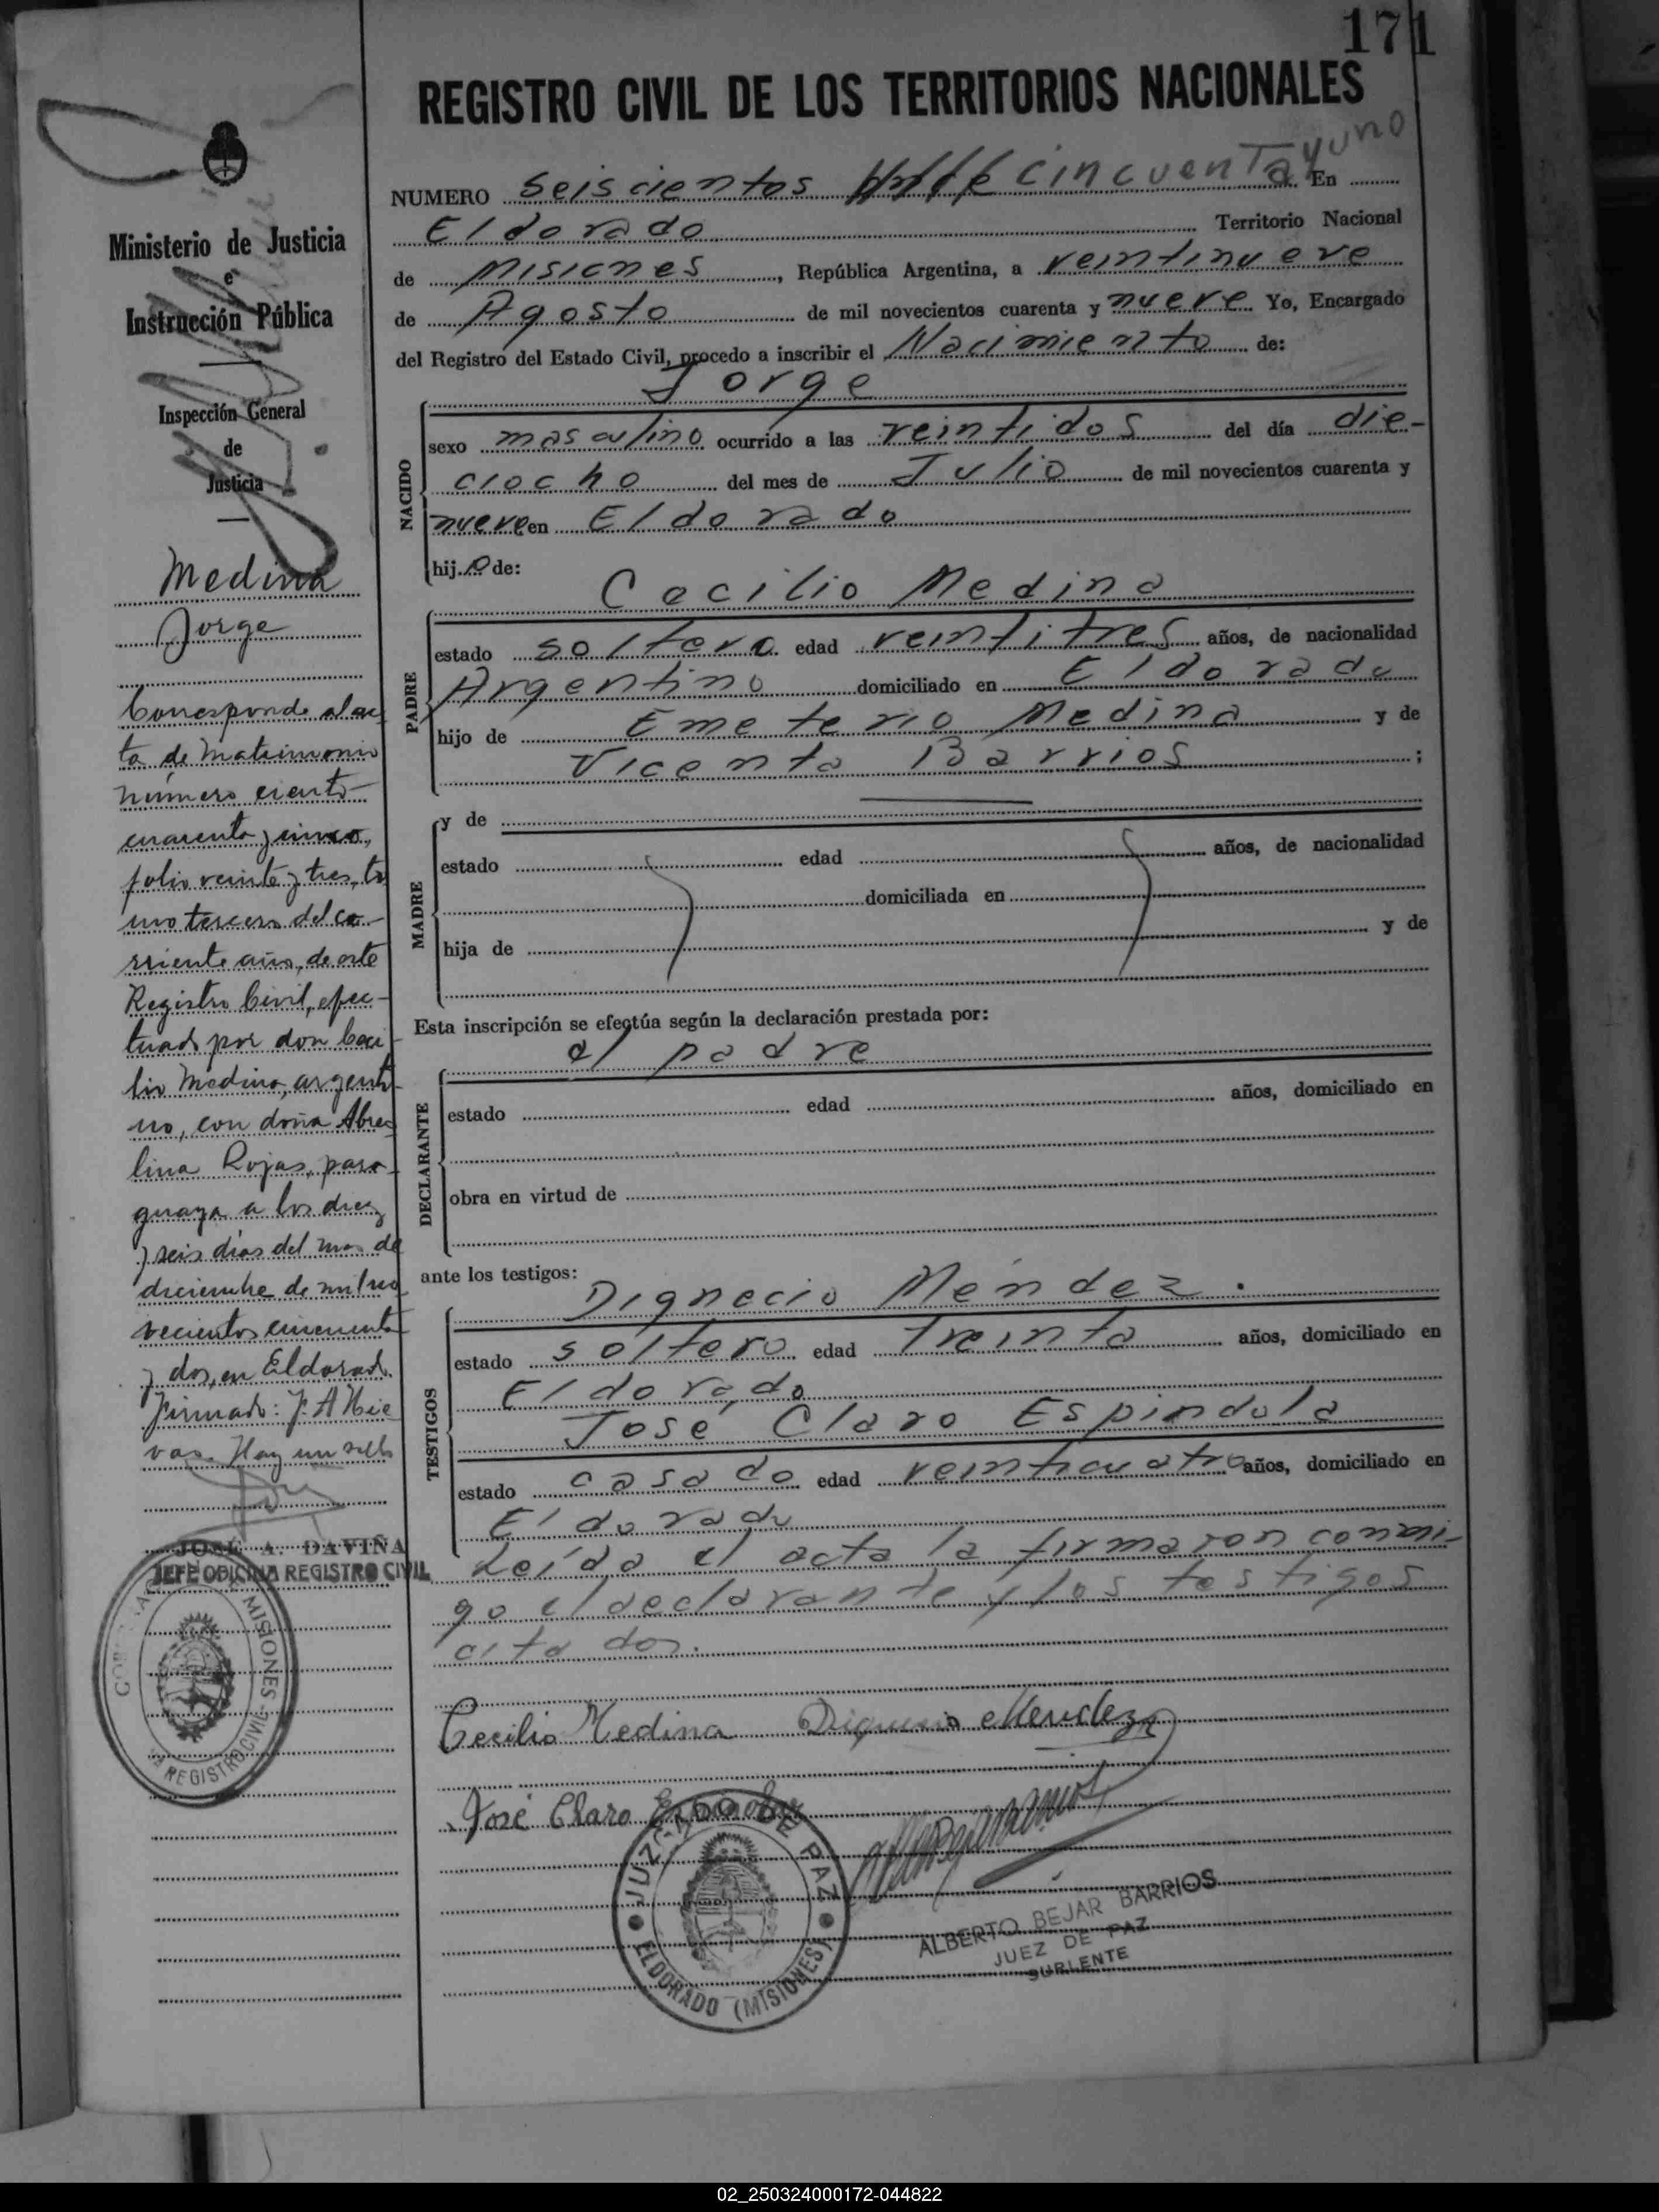 171
REGISTRO CIVIL DE LOS TERRITORIOS NACIONALES
NUMERO seiscientos cincuenta y uno En
Eldorado Territorio Nacional
de Misiones, República Argentina, a veintinueve
de Agosto de mil novecientos cuarenta y nueve Yo, Encargado
del Registro del Estado Civil, procedo a inscribir el Nacimiento de:
Jorge
NACIDO
sexo masculino ocurrido a las veintidos del día die-
ciocho del mes de Julio de mil novecientos cuarenta y
nueve en Eldorado
hij.o de:
Cecilio Medina
PADRE
estado soltero edad veintitres años, de nacionalidad
Argentino domiciliado en Eldorado
hijo de Emeterio Medina y de
Vicenta Barrios ;
MADRE
y de
estado edad años, de nacionalidad
domiciliada en
hija de y de
Esta inscripción se efectúa según la declaración prestada por:
el padre
DECLARANTE
estado edad años, domiciliado en
obra en virtud de
ante los testigos:
Dignecio Méndez.
TESTIGOS
estado soltero edad treinta años, domiciliado en
Eldorado
José Claro Espindola
estado casado edad veinticuatro años, domiciliado en
Eldorado
Leída el acta la firmaron conmi-
go el declarante y los testigos
citados.
Cecilio Medina Mendez
José Claro Espindola
JUZGADO DE PAZ
ELDORADO (MISIONES)
ALBERTO BEJAR BARRIOS
JUEZ DE PAZ
SUPLENTE
Ministerio de Justicia
e
Instrucción Pública
Inspección General
de
Justicia
Medina
Jorge
Corresponde al ac
ta de Matrimonio
número ciento
cuarenta y cinco,
folio veinte y tres, to
mo tercero del co-
rriente año, de este
Registro Civil, efec-
tuado por don Ceci
lio Medina, argenti
no, con doña Abre
lina Rojas, para-
guaya a los diez
y seis dias del mes de
diciembre de mil no
vecientos cincuenta
y dos, en Eldorado.
Firmado: J. A Nie
vas. Hay un sello
JOSÉ A. DAVIÑA
JEFE OFICINA REGISTRO CIVIL
MISIONES
REGISTRO CIVIL
02_250324000172-044822